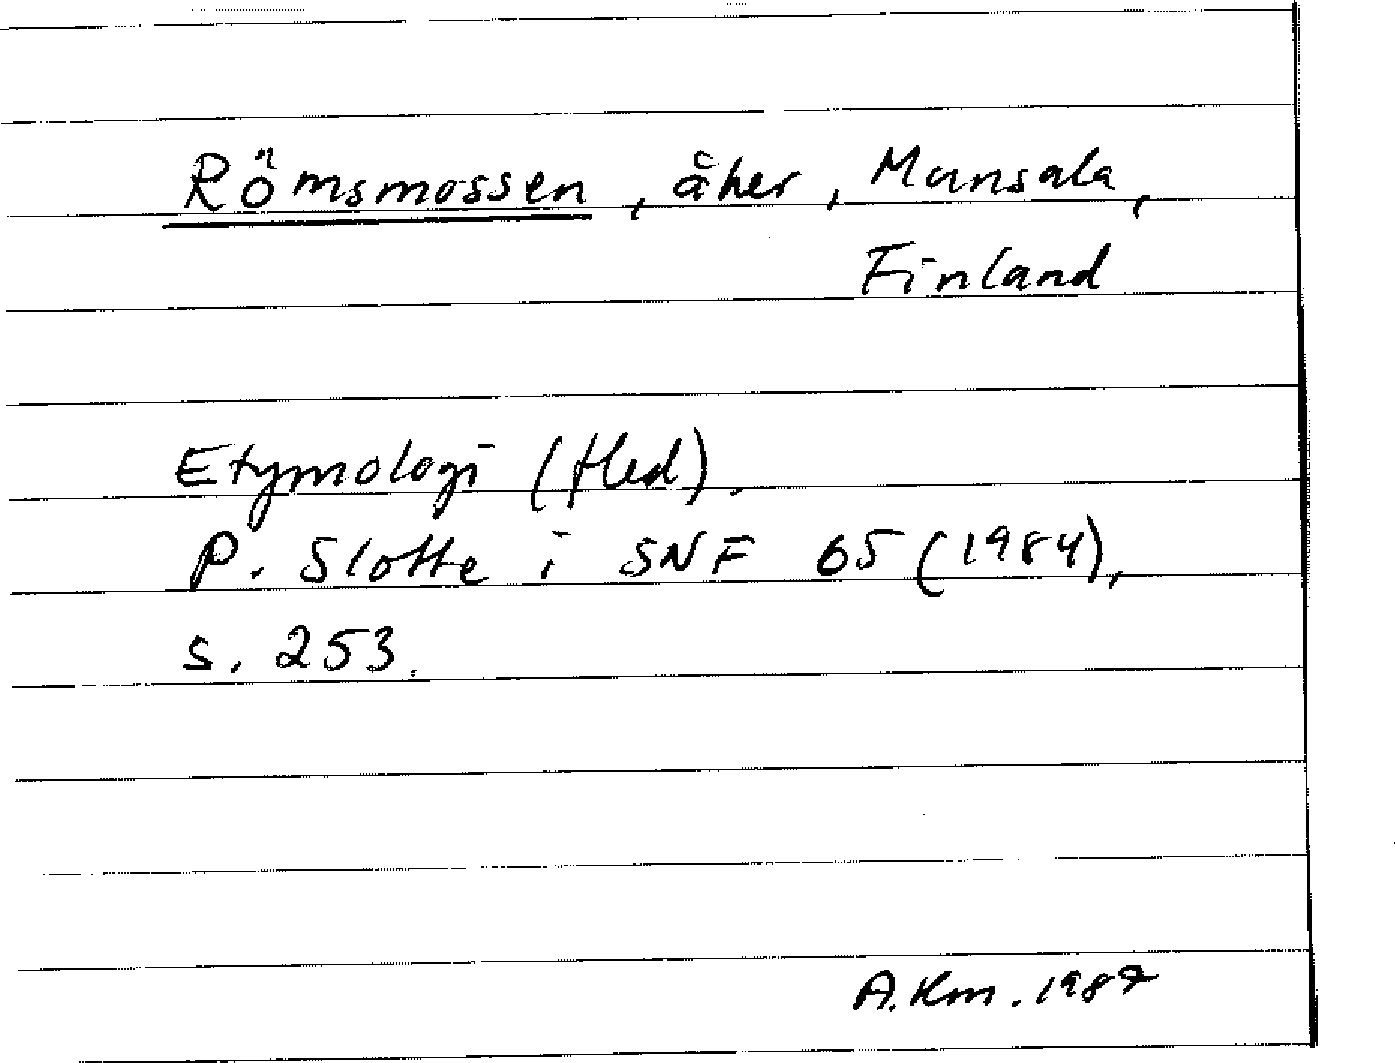 Römsmossen, åker, Munsala,
Finland
Etymologi (fled).
P. Slotte i SNF 65 (1984),
s. 253.
A. Km. 1987